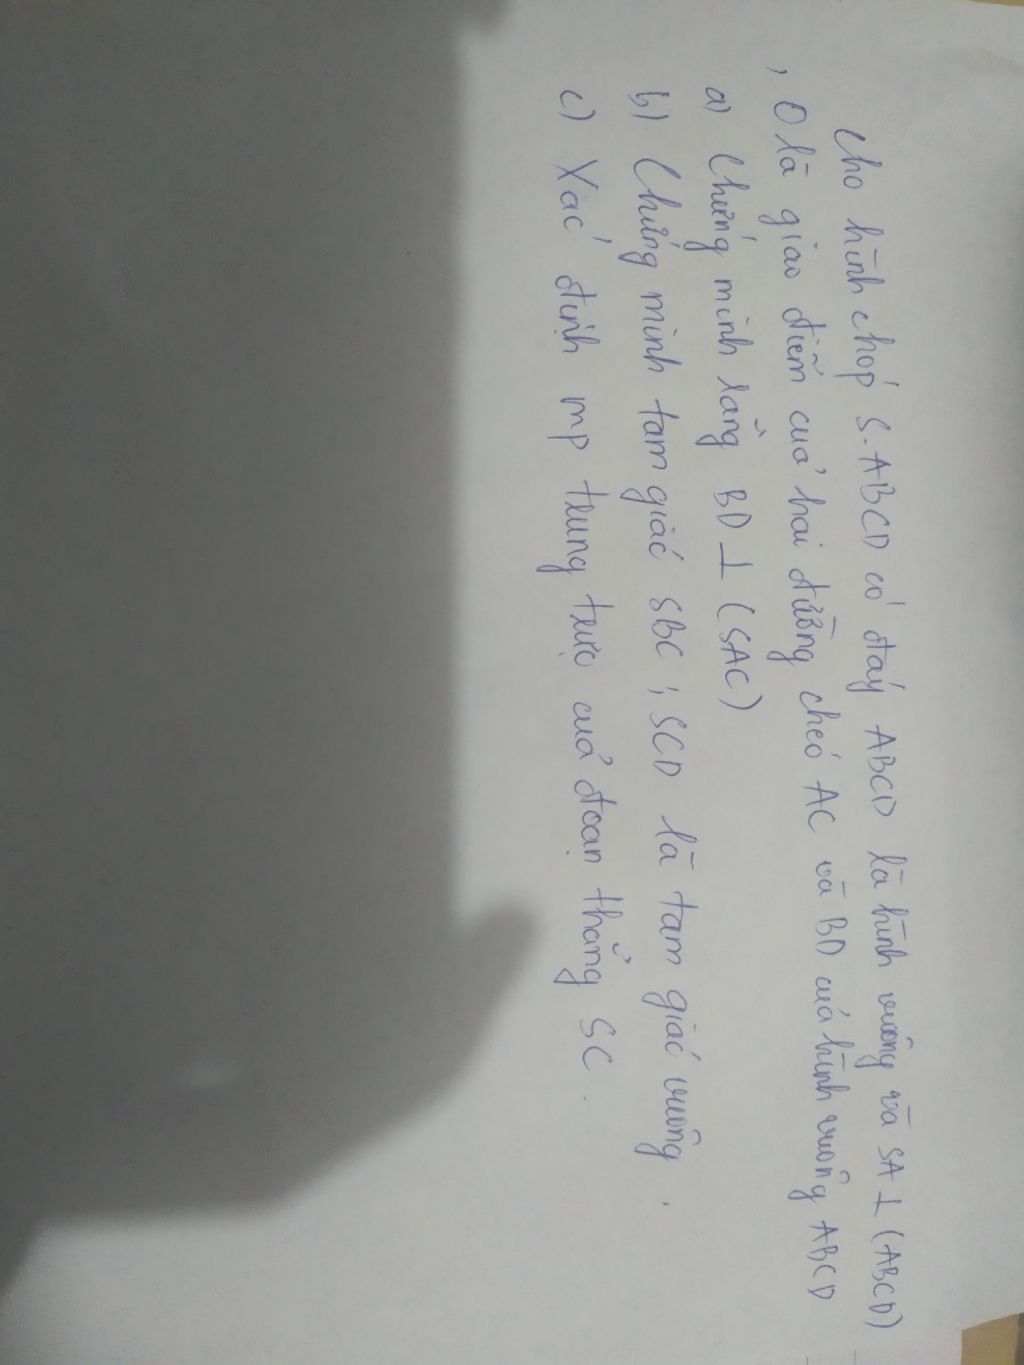 Cho hình chóp S.ABCD có đáy ABCD là hình vuông và SA ⊥ (ABCD)
, O là giao điểm của hai đường chéo AC và BD của hình vuông ABCD
a) Chứng minh rằng BD ⊥ (SAC)
b) Chứng minh tam giác SBC ; SCD là tam giác vuông .
c) Xác định mp trung trực của đoạn thẳng SC .